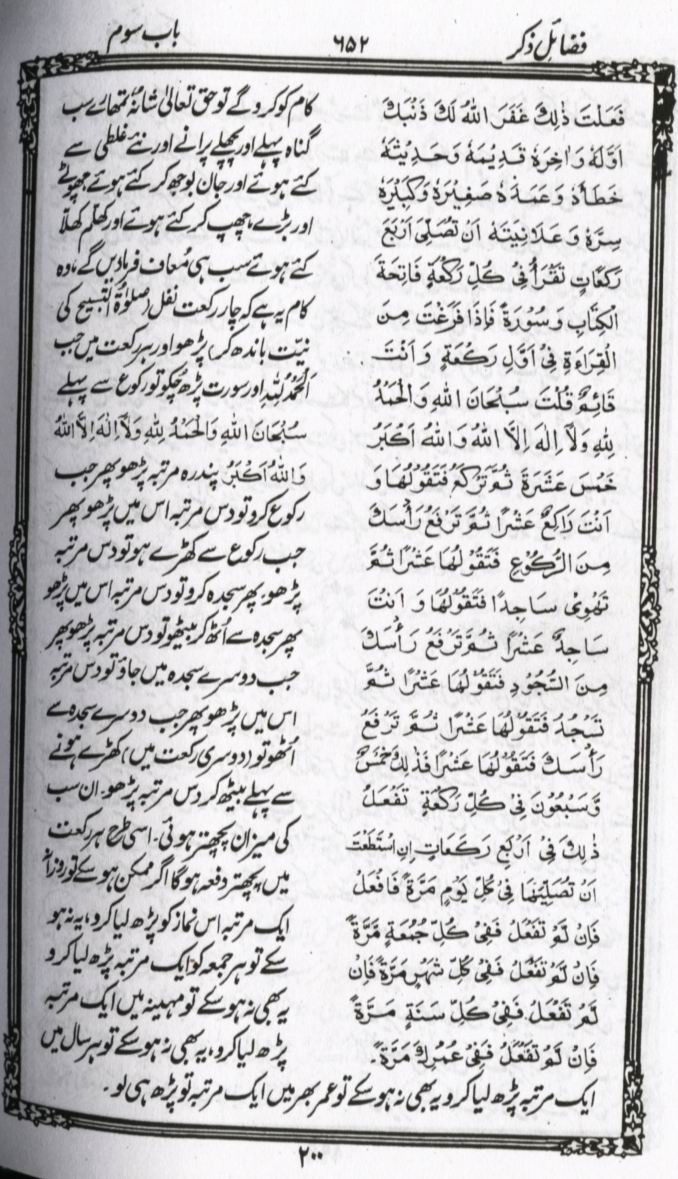 فضائل ذکر
۶۵۲
باب سوم
فَعَلْتَ ذٰلِكَ غَفَرَ اللهُ لَكَ ذَنْبَكَ
اَوَّلَهٗ وَاٰخِرَهٗ قَدِيْمَهٗ وَحَدِيْثَهٗ
خَطَأَهٗ وَعَمَدَهٗ صَغِيْرَهٗ وَكَبِيْرَهٗ
سِرَّهٗ وَعَلَانِيَتَهٗ اَنْ تُصَلِّیَ اَرْبَعَ
رَكَعَاتٍ تَقْرَأُ فِیْ كُلِّ رَكْعَةٍ فَاتِحَةَ
الْكِتَابِ وَسُوْرَةً فَاِذَا فَرَغْتَ مِنَ
الْقِرَاءَةِ فِیْ اَوَّلِ رَكْعَةٍ وَاَنْتَ
قَائِمٌ قُلْتَ سُبْحَانَ اللهِ وَالْحَمْدُ
لِلّٰهِ وَلَآ اِلٰهَ اِلَّا اللهُ وَاللهُ اَكْبَرُ
خَمْسَ عَشَرَةَ ثُمَّ تَرْكَعُ فَتَقُوْلُهَا وَ
اَنْتَ رَاكِعٌ عَشْرًا ثُمَّ تَرْفَعُ رَأْسَكَ
مِنَ الرُّكُوْعِ فَتَقُوْلُهَا عَشْرًا ثُمَّ
تَهْوِیْ سَاجِدًا فَتَقُوْلُهَا وَ اَنْتَ
سَاجِدٌ عَشْرًا ثُمَّ تَرْفَعُ رَأْسَكَ
مِنَ السُّجُوْدِ فَتَقُوْلُهَا عَشْرًا ثُمَّ
تَسْجُدُ فَتَقُوْلُهَا عَشْرًا ثُمَّ تَرْفَعُ
رَأْسَكَ فَتَقُوْلُهَا عَشْرًا فَذٰلِكَ خَمْسٌ
وَّسَبْعُوْنَ فِیْ كُلِّ رَكْعَةٍ تَفْعَلُ
ذٰلِكَ فِیْ اَرْبَعِ رَكَعَاتٍ اِنِ اسْتَطَعْتَ
اَنْ تُصَلِّيَهَا فِیْ كُلِّ يَوْمٍ مَرَّةً فَافْعَلْ
فَاِنْ لَمْ تَفْعَلْ فَفِیْ كُلِّ جُمُعَةٍ مَرَّةً
فَاِنْ لَمْ تَفْعَلْ فَفِیْ كُلِّ شَهْرٍ مَرَّةً فَاِنْ
لَمْ تَفْعَلْ فَفِیْ كُلِّ سَنَةٍ مَرَّةً
فَاِنْ لَمْ تَفْعَلْ فَفِیْ عُمُرِكَ مَرَّةً
کام کو کرو گے تو حق تعالیٰ شانہٗ تمھارے سب
گناہ پہلے اور پچھلے پرانے اور نئے غلطی سے
کئے ہوئے اور جان بوجھ کر کئے ہوئے چھوٹے
اور بڑے، چھپ کر کئے ہوئے اور کھلم کھلا
کئے ہوئے سب ہی معاف فرمادیں گے، وہ
کام یہ ہے کہ چار رکعت نفل (صلوٰۃ التسبیح کی
نیت باندھ کر) پڑھو اور ہر رکعت میں جب
اَلْحَمْدُ لِلّٰہِ اور سورت پڑھ چکو تو رکوع سے پہلے
سُبْحَانَ اللهِ وَالْحَمْدُ لِلّٰهِ وَلَآ اِلٰهَ اِلَّا اللهُ
وَاللهُ اَكْبَرُ پندرہ مرتبہ پڑھو پھر جب
رکوع کرو تو دس مرتبہ اس میں پڑھو پھر
جب رکوع سے کھڑے ہو تو دس مرتبہ
پڑھو، پھر سجدہ کرو تو دس مرتبہ اس میں پڑھو
پھر سجدہ سے اٹھ کر بیٹھو تو دس مرتبہ پڑھو پھر
جب دوسرے سجدہ میں جاؤ تو دس مرتبہ
اس میں پڑھو پھر جب دوسرے سجدہ سے
اٹھو تو (دوسری رکعت میں) کھڑے ہونے
سے پہلے بیٹھ کر دس مرتبہ پڑھو۔ ان سب
کی میزان پچھتر ہوئی۔ اسی طرح ہر رکعت
میں پچھتر دفعہ ہو گا اگر ممکن ہو سکے تو روزانہ
ایک مرتبہ اس نماز کو پڑھ لیا کرو، یہ نہ ہو
سکے تو ہر جمعہ کو ایک مرتبہ پڑھ لیا کرو
یہ بھی نہ ہو سکے تو مہینہ میں ایک مرتبہ
پڑھ لیا کرو، یہ بھی نہ ہو سکے تو ہر سال میں
ایک مرتبہ پڑھ لیا کرو یہ بھی نہ ہو سکے تو عمر بھر میں ایک مرتبہ تو پڑھ ہی لو۔
۲۰۰